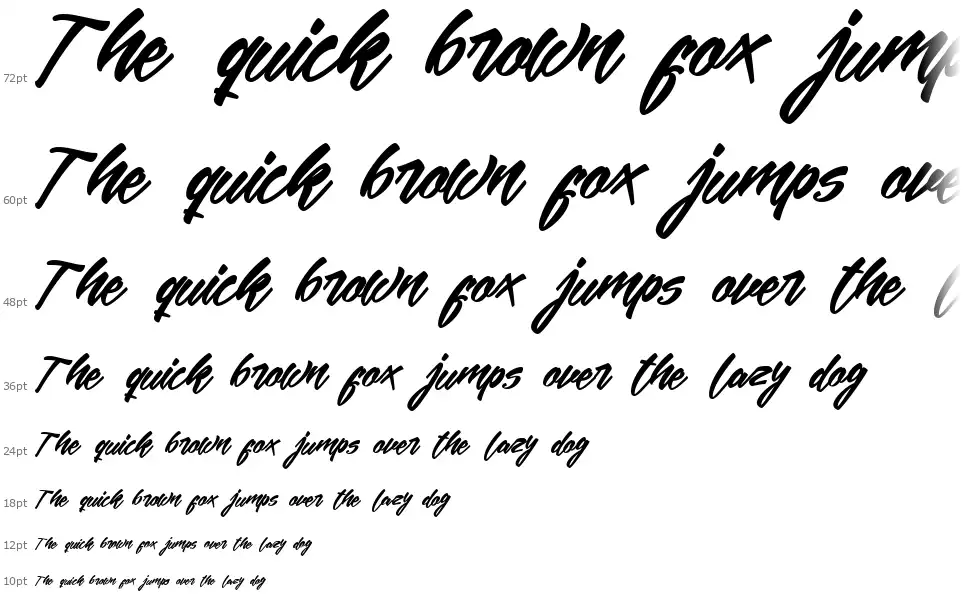 72pt The quick brown fox jump
60pt The quick brown fox jumps ove
48pt The quick brown fox jumps over the l
36pt The quick brown fox jumps over the lazy dog
24pt The quick brown fox jumps over the lazy dog
18pt The quick brown fox jumps over the lazy dog
12pt The quick brown fox jumps over the lazy dog
10pt The quick brown fox jumps over the lazy dog